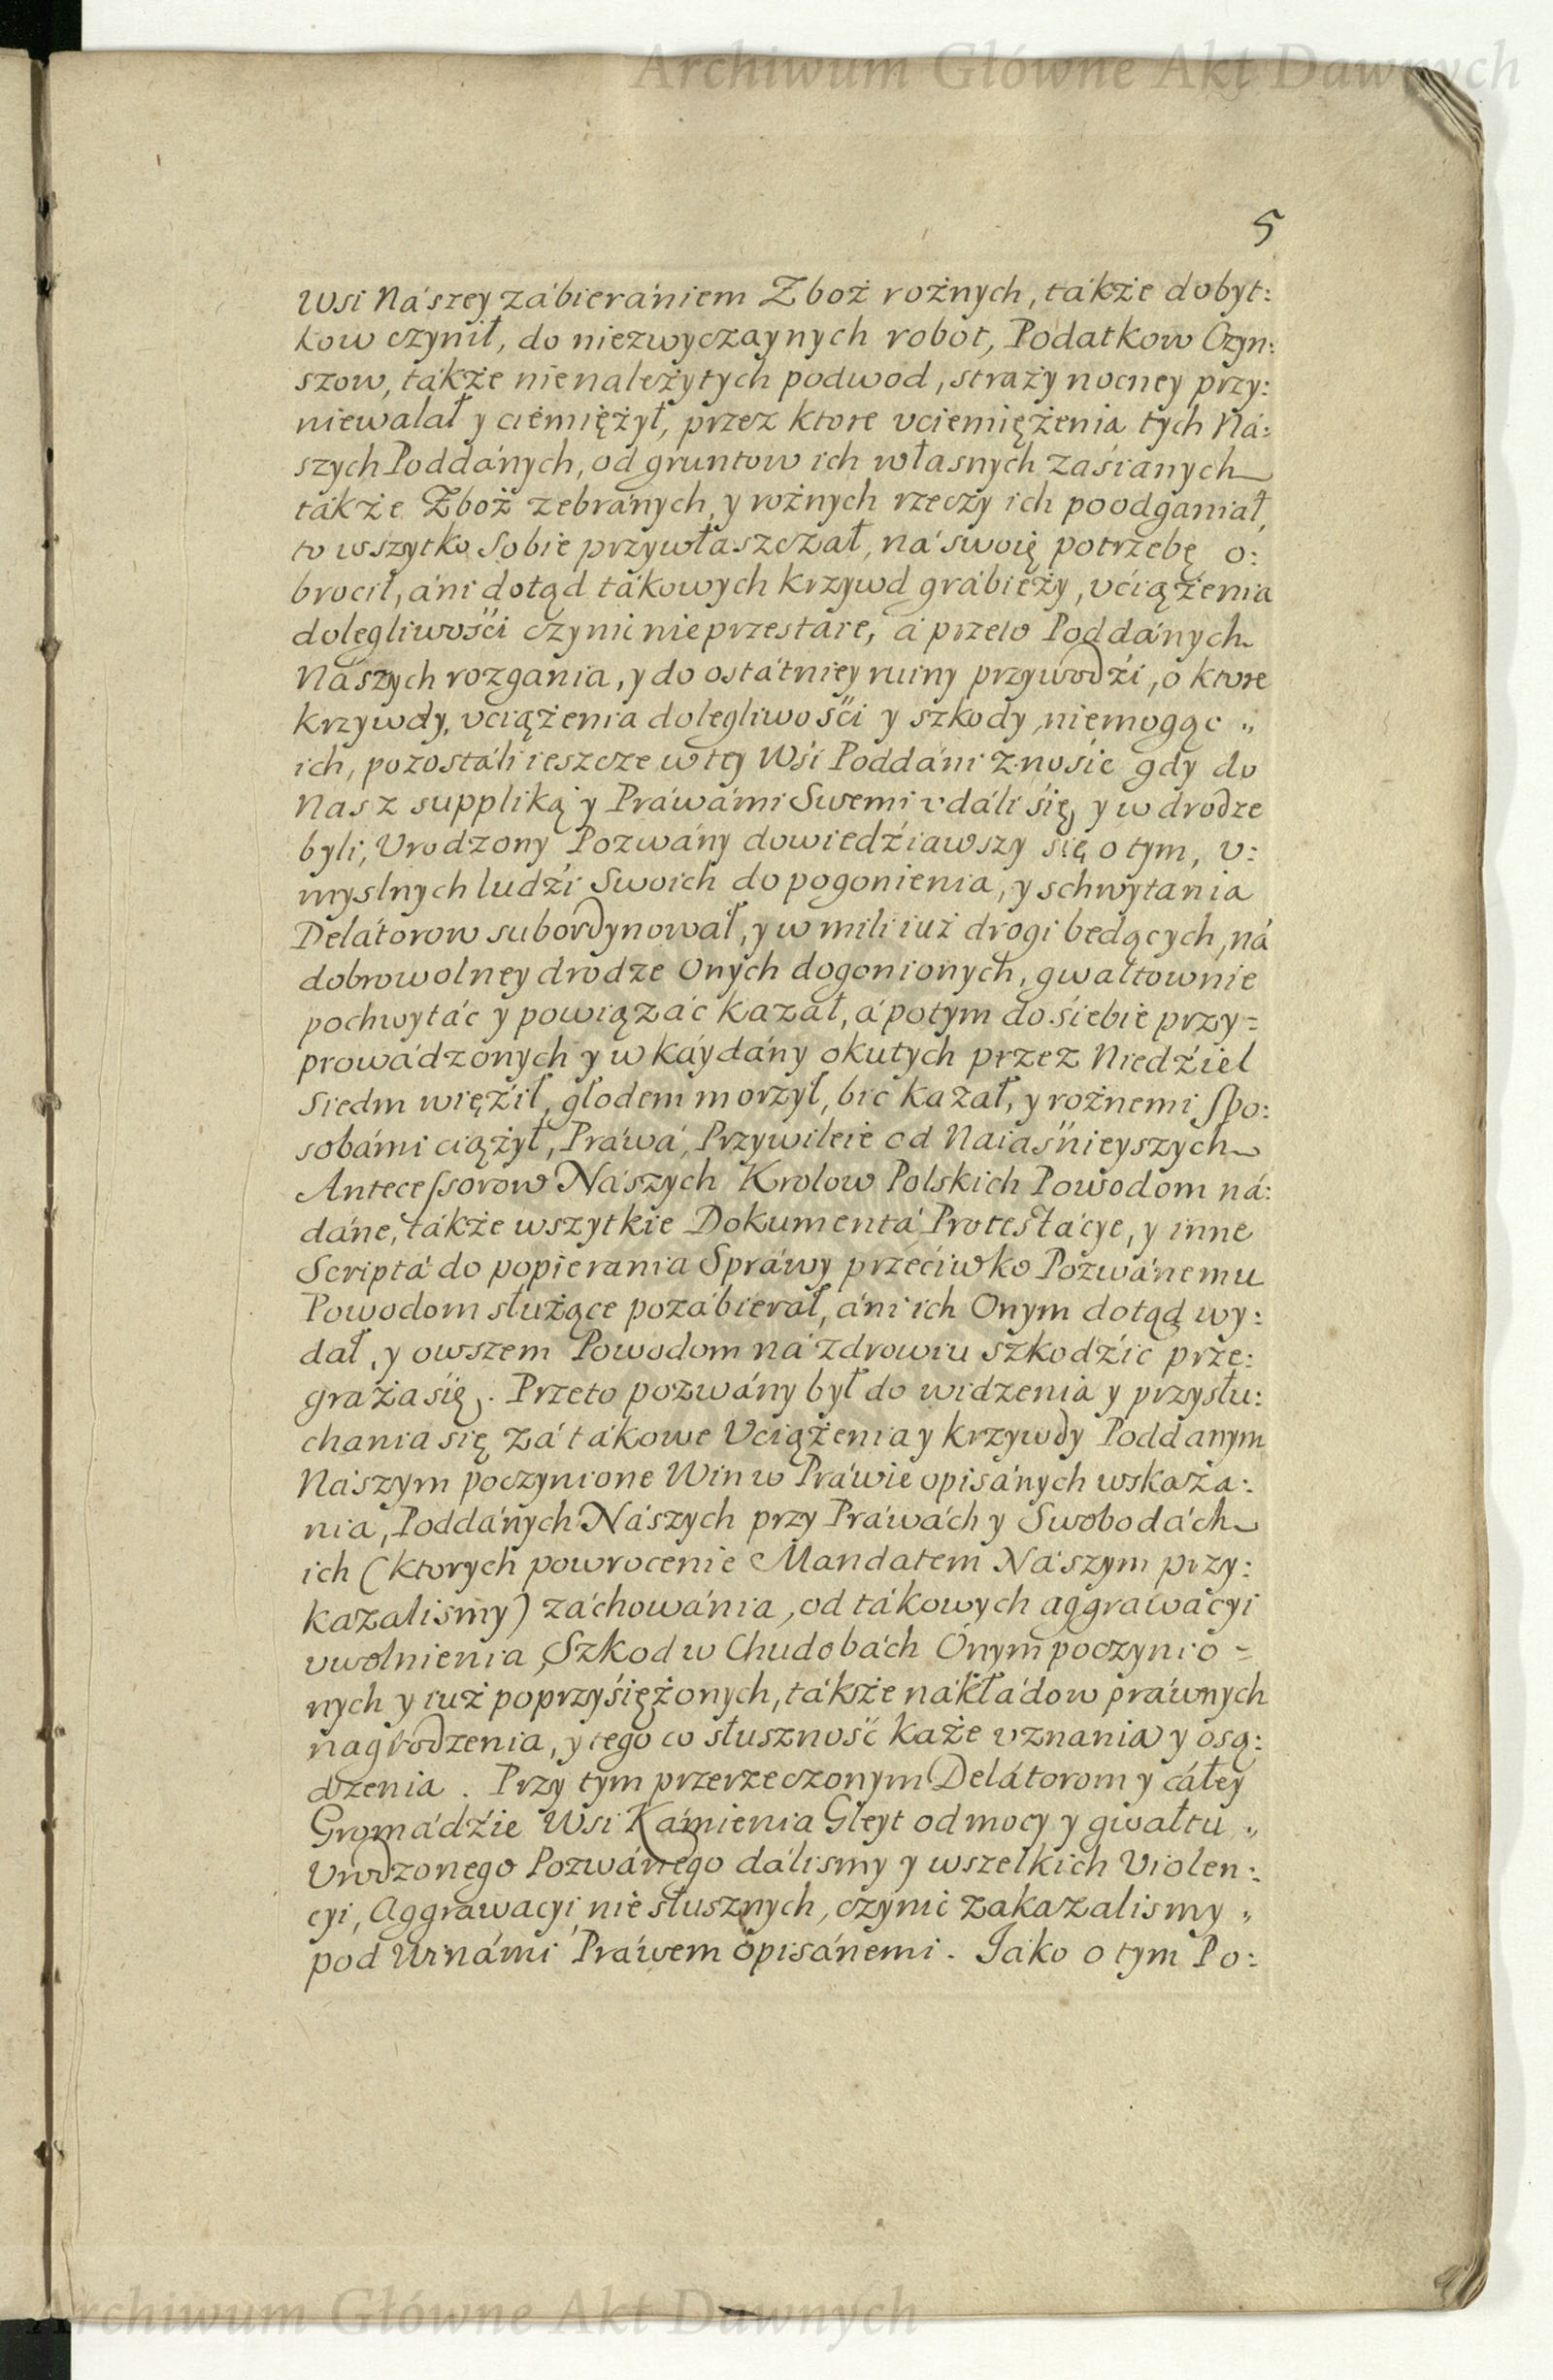 Archiwum Główne Akt Dawnych
5
Wsi Nászey zábierániem Zboż rożnych, tákże dobyt:
kow czynił, do niezwyczaynych robot, Podatkow Czyn:
szow, tákże nienależytych podwod, straży nocney przy:
niewalał y ciémiężył, przez ktore vciemiężenia tych Ná:
szych Poddánych, od gruntow ich własnych zaśianych
tákże Zboż zebránych, y rożnych rzeczy ich poodganiał,
to wszytko Sobie przywłaszczał, ná swoię potrzebę o:
brocił, áni dotąd tákowych krzywd grábieży, vciążenia
dolegliwośći czynić nieprzestáie, á przeto Poddánych
Nászych rozgania, y do ostátniey ruiny przywodźi, o ktore
krzywdy, vciążenia dolegliwośći y szkody, niemogąc „
ich, pozostáli ieszcze w tey Wśi Poddáni znośić gdy do
Nas z suppliką y Práwámi Swemi vdáli śię, y w drodze
byli, Vrodzony Pozwány dowiedźiawszy się o tym, v:
myslnych ludźi Swoich do pogonienia, y schwytania
Delátorow subordynował, y w mili iuż drogi bedących, ná
dobrowolney drodze Onych dogonionych, gwałtownie
pochwytáć y powiązáć kazał, á potym do śiebie przy=
prowádzonych y w káydány okutych przez Niedźiel
Siedm więźił, głodem morzył, bić kazał, y rożnemi spo:
sobámi ciążył, Práwá, Przywileie od Naiaśnieyszych
Antecessorow Nászych Krolow Polskich Powodom ná:
dáne, tákże wszytkie Dokumentá Protestácye, y inne
Scriptá do popierania Spráwy przećiwko Pozwánemu
Powodom służące pozábierał, áni ich Onym dotąd wy:
dał, y owszem Powodom ná zdrowiu szkodźić prze:
graża się. Przeto pozwány był do widzenia y przysłu:
chania się zá tákowe Vciążenia y krzywdy Poddanym
Nászym poczynione Win w Práwie opisánych wskaza:
nia, Poddánych Nászych przy Práwách y Swobodách
ich (ktorych powrocenie Mandatem Nászym przy:
kazalismy) záchowánia, od tákowych aggrawácyi
vwolnienia, Szkod w Chudobách Onym poczynio=
nych y iuż poprzyśiężonych, tákże nákłádow práwnych
nagrodzenia, y tego co słuszność każe vznania y osą:
dzenia. Przy tym przerzeczonym Delátorom y cáłey
Gromádźie Wsi Kámienia Gleyt od mocy y gwałtu „
Vrodzonego Pozwánego dálismy y wszelkich Violen:
cyi, Aggrawacyi niesłusznych, czynić zakazalismy „
pod Winámi Práwem opisánemi. Jáko o tym Po:
Archiwum Główne Akt Dawnych